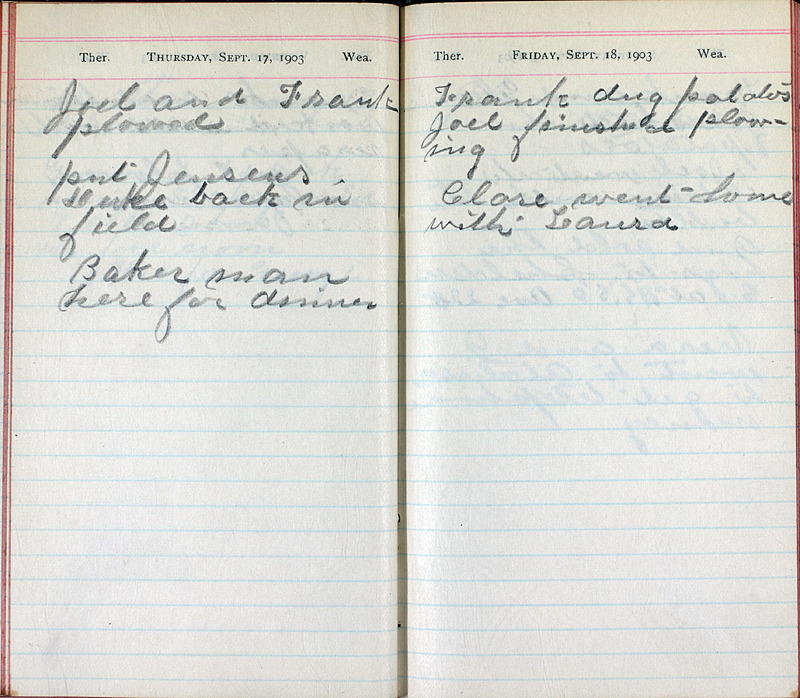 Ther. THURSDAY, SEPT. 17, 1903 Wea.
Joel and Frank
plowed
put Jensens
Duke back in
field
Baker man
here for dinner
Ther. FRIDAY, SEPT. 18, 1903 Wea.
Frank dug potatos
Joel finished plow-
ing
Clare went home
with Laura